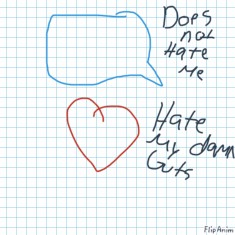 Does
not
Hate
Me
Hate
My damn
Guts
FlipAnim